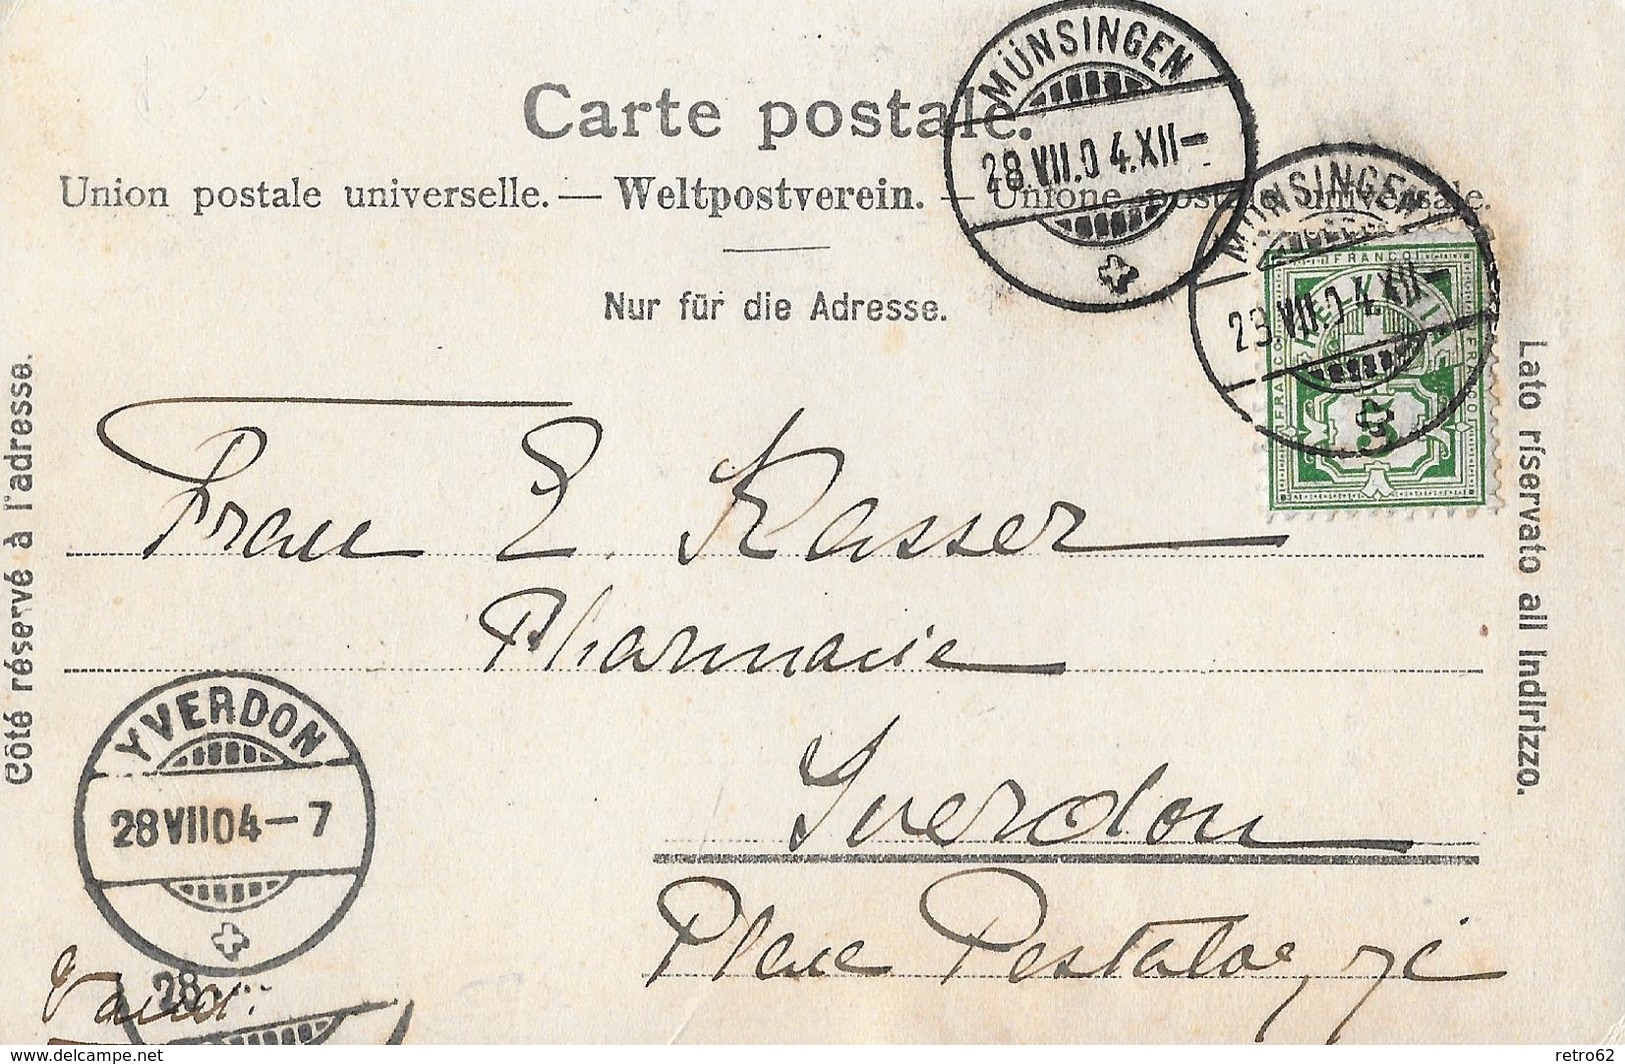 MÜNSINGEN
28.VII.04.XII-
Carte postale.
Union postale universelle. — Weltpostverein. — Unione postale universale.
MÜNSINGEN
28.VII.04.XII-
FRANCO
FRANCO
FRANCO
5
Nur für die Adresse.
Côté réservé à l'adresse.
Lato riservato all Indirizzo.
Frau E. Kasser
Pharmacie
Yverdon
Place Pestalozzi
YVERDON
28 VII 04-7
Vaud.
28
www.delcampe.net
retro62